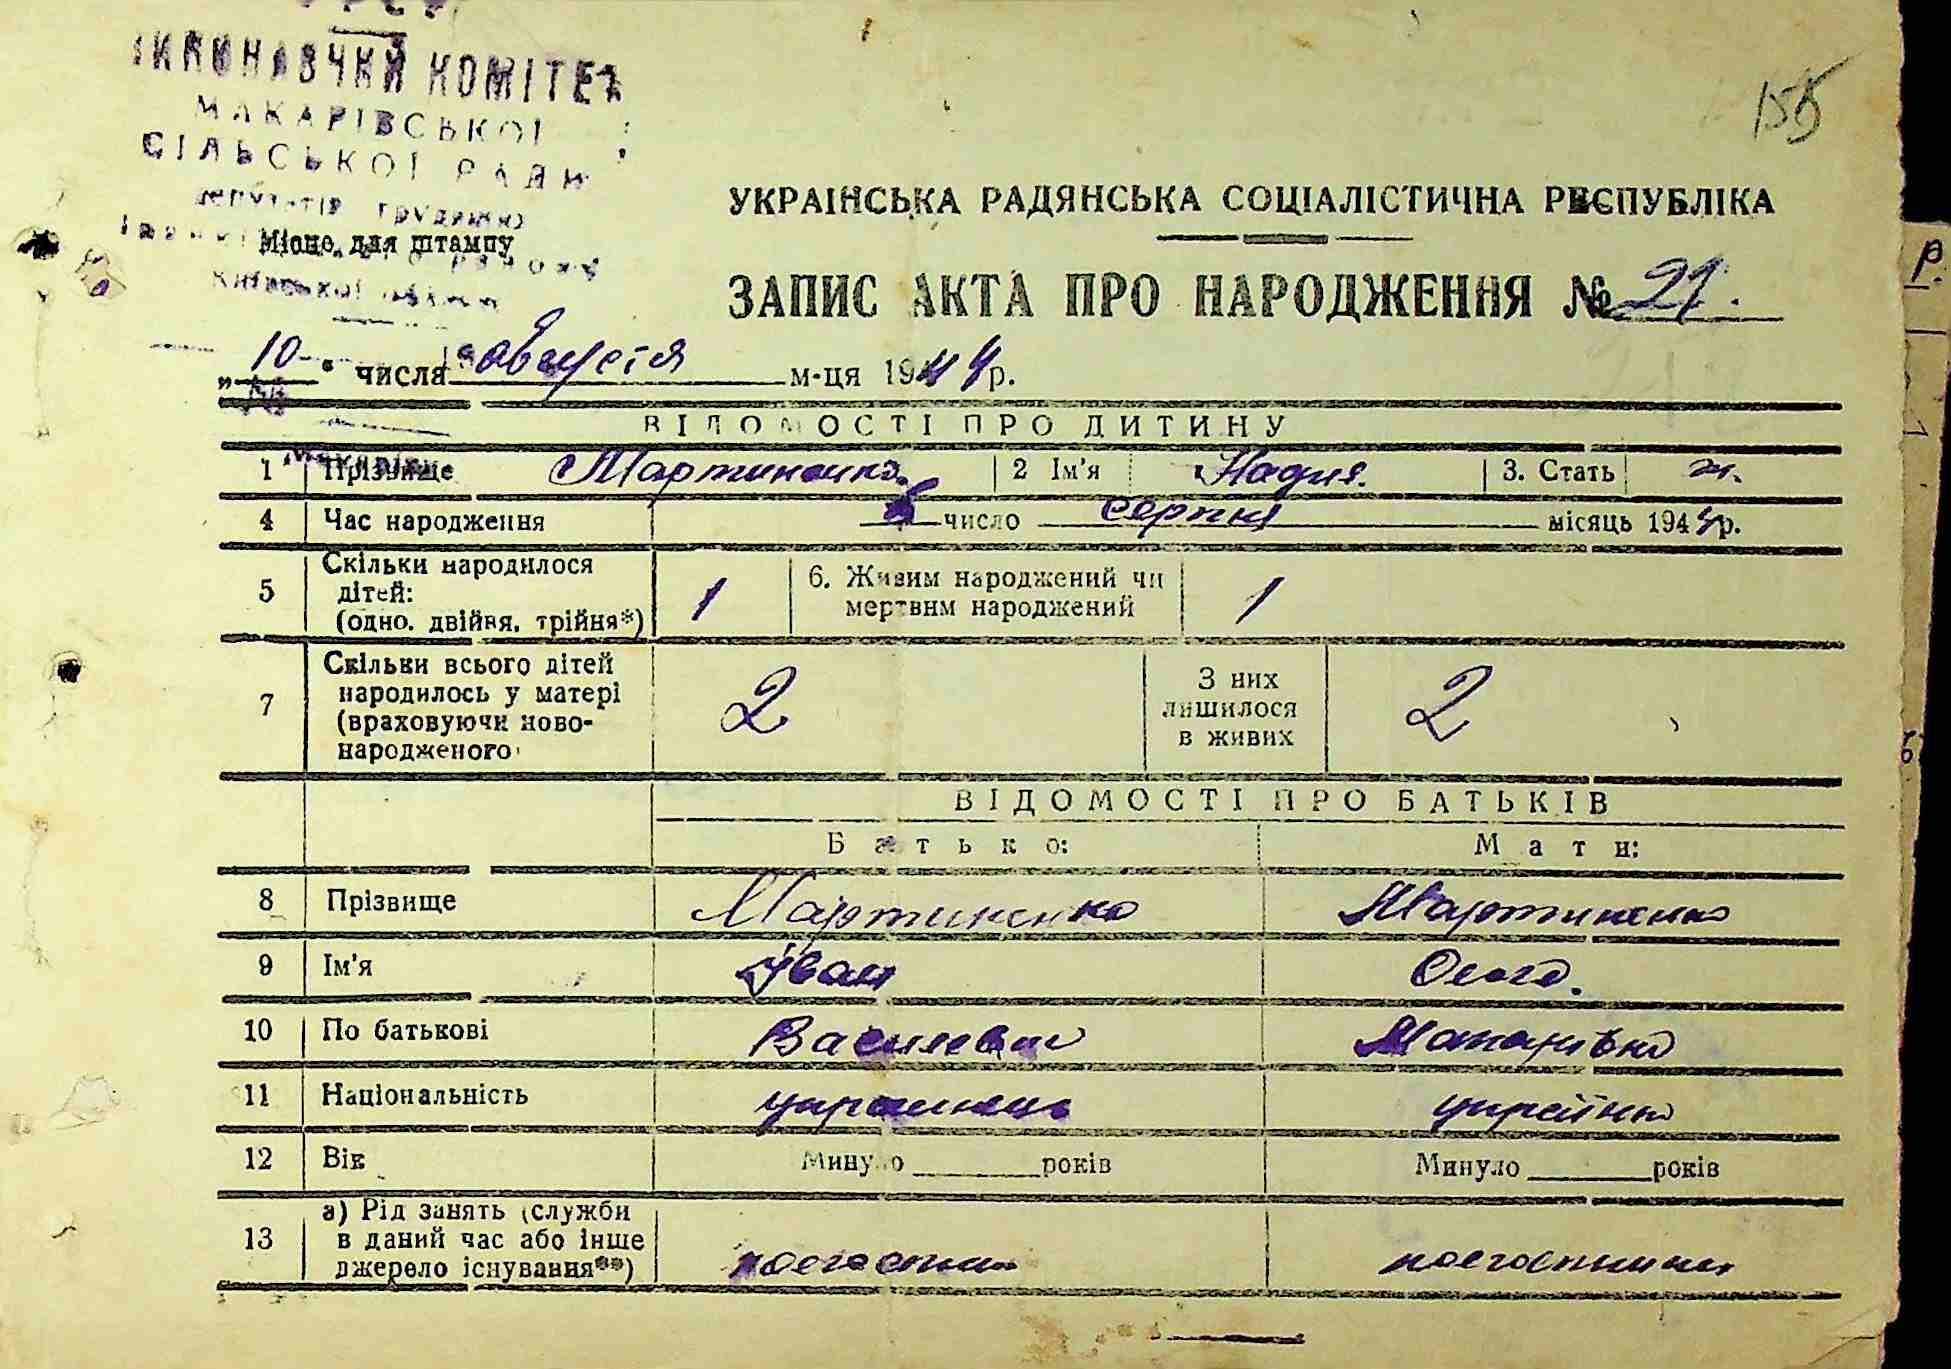 ВИКОНАВЧИЙ КОМІТЕТ
МАКАРІВСЬКОЇ
СІЛЬСЬКОЇ РАДИ
депутатів трудящих
Місце для штампу
Київської області
155
УКРАЇНСЬКА РАДЯНСЬКА СОЦІАЛІСТИЧНА РЕСПУБЛІКА
ЗАПИС АКТА ПРО НАРОДЖЕННЯ № 21.
„10" числа августа м-ця 1944 р.
ВІДОМОСТІ ПРО ДИТИНУ
1 Прізвище Мартиненко 2 Ім'я Надия. 3. Стать ж.
4 Час народження число серпня місяць 1944 р.
5 Скільки народилося дітей: (одно, двійня, трійня*) 1 6. Живим народжений чи мертвим народжений 1
7 Скільки всього дітей народилось у матері (враховуючи новонародженого) 2 З них лишилося в живих 2
ВІДОМОСТІ ПРО БАТЬКІВ
Батько: Мати:
8 Прізвище Мартиненко Мартиненко
9 Ім'я Іван Ольга.
10 По батькові Василевич Макарівна
11 Національність українець українка
12 Вік Минуло ______ років Минуло ______ років
13 а) Рід занять (служби в даний час або інше джерело існування**) колгоспник колгоспниця